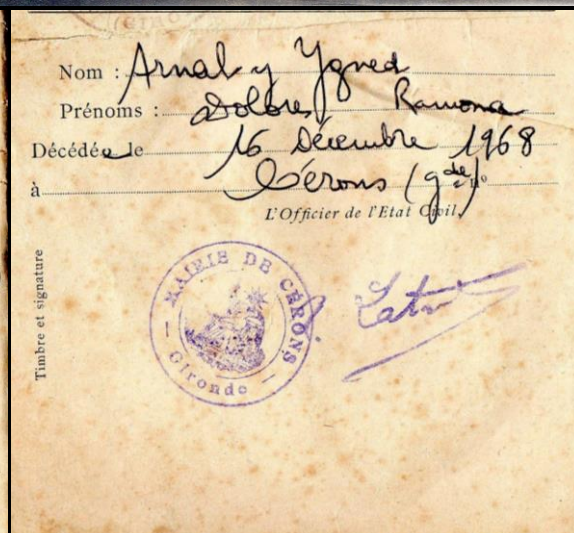 GIRO
Nom : Arnal y Ygned
Prénoms : Dolores Ramona
Décédée le 16 Décembre 1968
à Cérons (gde) n°
L'Officier de l'Etat Civil,
Timbre et signature
MAIRIE DE CÉRONS
Gironde